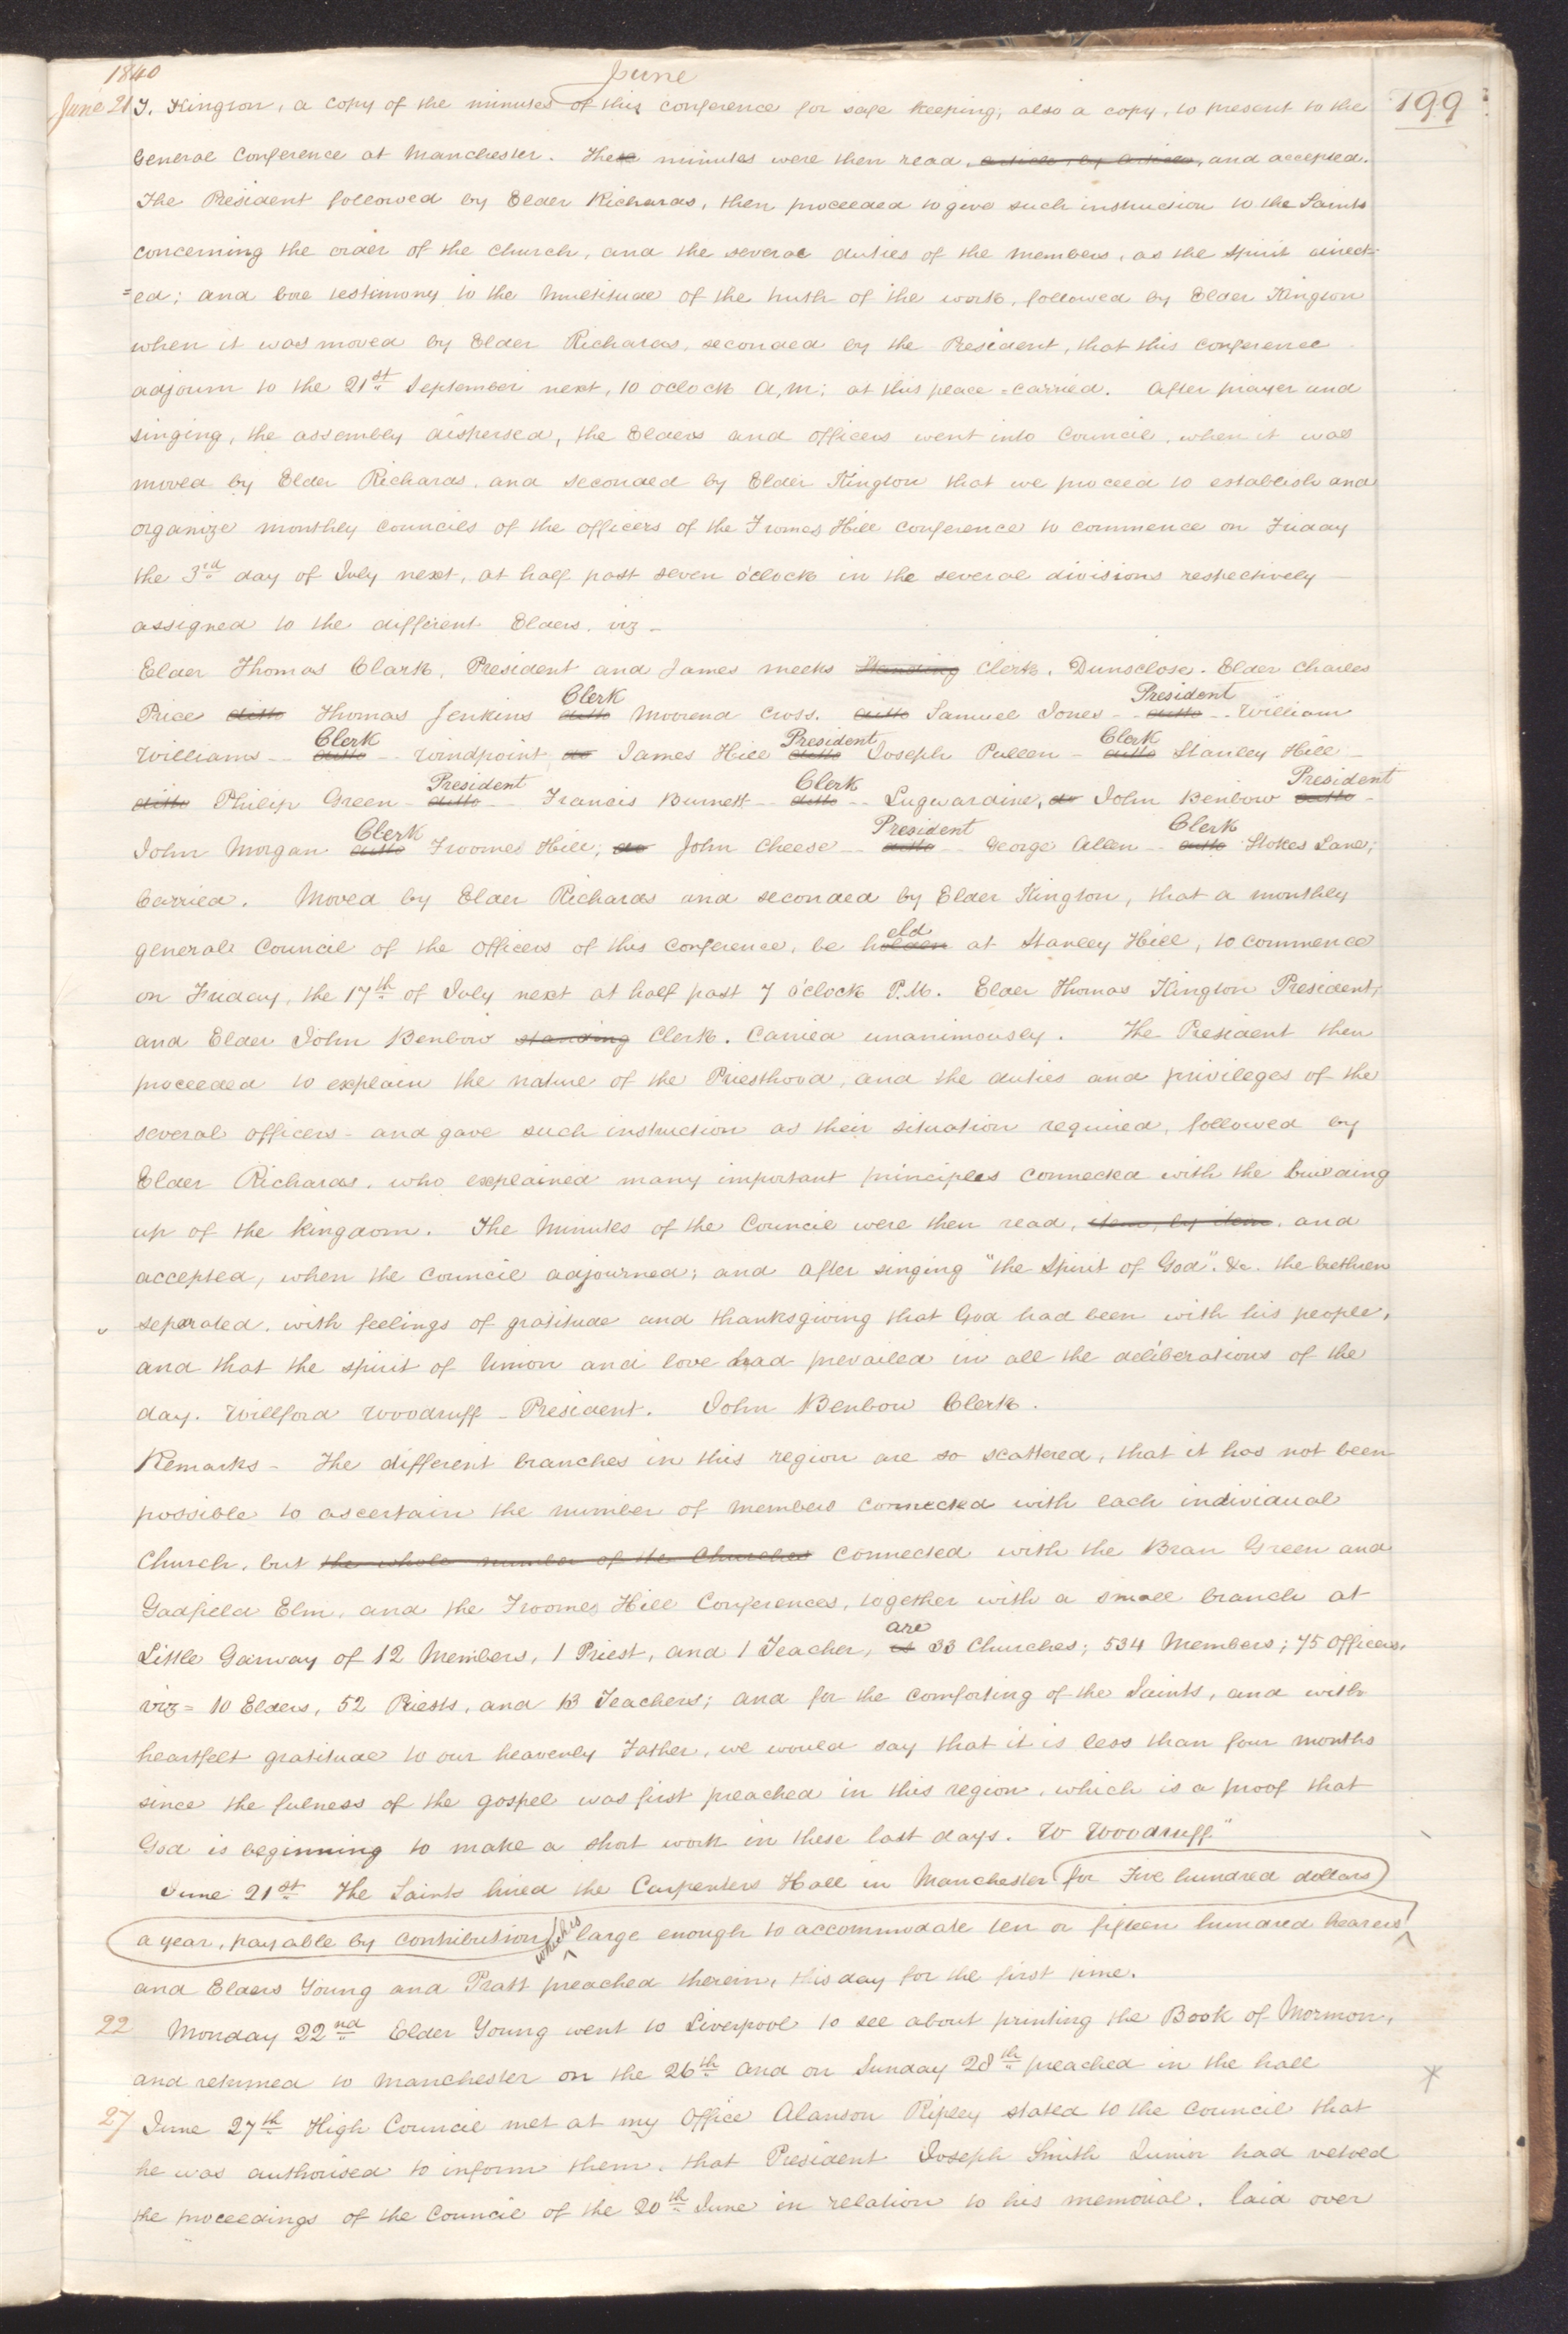 1840 June
June 21 T. Kington, a copy of the minutes of this conference for safe keeping, also a copy, to present to the 199
General Conference at Manchester. These minutes were then read, article, by article, and accepted.
The President followed by Elder Richards, then proceeded to give such instruction to the Saints
concerning the order of the church, and the several duties of the members, as the spirit direct-
=ed; and bore testimony to the multitude of the truth of the work, followed by Elder Kington
when it was moved by Elder Richards, seconded by the President, that this conference
adjourn to the 21st September next, 10 oclock A,M; at this place - carried. After prayer and
singing, the assembly dispersed, the Elders and officers went into Council, when it was
moved by Elder Richards, and seconded by Elder Kington that we proceed to establish and
organize monthly councils of the officers of the Fromes Hill conference to commence on Friday
the 3rd day of July next, at half past seven o'clock in the several divisions respectively
assigned to the different Elders, viz -
Elder Thomas Clark, President and James Meeks Standing Clerk, Dunsclose. Elder Charles
Clerk President
Price ditto Thomas Jenkins ditto Moorend Cross. ditto Samuel Jones - ditto - William
Clerk President Clerk
Williams - ditto - Windpoint do James Hill ditto Joseph Pullen - ditto Stanley Hill
President Clerk President
ditto Philip Green - ditto - Francis Burnett - ditto - Lugwardine, do John Benbow ditto -
Clerk President Clerk
John Morgan ditto Froomes Hill; do John Cheese - ditto - George Allen - ditto Stokes Lane;
Carried. Moved by Elder Richards and seconded by Elder Kington, that a monthly
eld
general Council of the officers of this Conference, be holden at Stanley Hill, to commence
on Friday, the 17th of July next at half past 7 o'clock P.M. Elder Thomas Kington President,
and Elder John Benbow standing Clerk. Carried unanimously. The President then
proceeded to explain the nature of the Priesthood, and the duties and privileges of the
several officers - and gave such instruction as their situation required, followed by
Elder Richards, who explained many important principles connected with the building
up of the kingdom. The Minutes of the Council were then read, item, by item, and
accepted, when the council adjourned; and after singing "the Spirit of God", &c. the brethren
separated, with feelings of gratitude and thanksgiving that God had been with his people,
and that the spirit of Union and love had prevailed in all the deliberations of the
day. Willford Woodruff - President. John Benbow Clerk.
Remarks - The different branches in this region are so scattered, that it has not been
possible to ascertain the number of members connected with each individual
Church, but the whole number of the Churches connected with the Bran Green and
Gadfield Elm, and the Froomes Hill Conferences, together with a small branch at
are
Little Garway of 12 Members, 1 Priest, and 1 Teacher, is 33 Churches; 534 Members; 75 officers,
viz = 10 Elders, 52 Priests, and 13 Teachers; and for the comforting of the Saints, and with
heartfelt gratitude to our heavenly Father, we would say that it is less than four months
since the fulness of the gospel was first preached in this region, which is a proof that
God is beginning to make a short work in these last days. W Woodruff"
June 21st The Saints hired the Carpenters Hall in Manchester for Five hundred dollars
a year, payable by contribution, which is large enough to accommodate ten or fifteen hundred hearers
and Elders Young and Pratt preached therein, this day for the first time.
22 Monday 22nd Elder Young went to Liverpool to see about printing the Book of Mormon,
and returned to Manchester on the 26th and on Sunday 28th preached in the hall
27 June 27th High Council met at my Office Alanson Ripley stated to the Council that
he was authorised to inform them, that President Joseph Smith Junior had vetoed
the proceedings of the Council of the 20th June in relation to his memorial. laid over